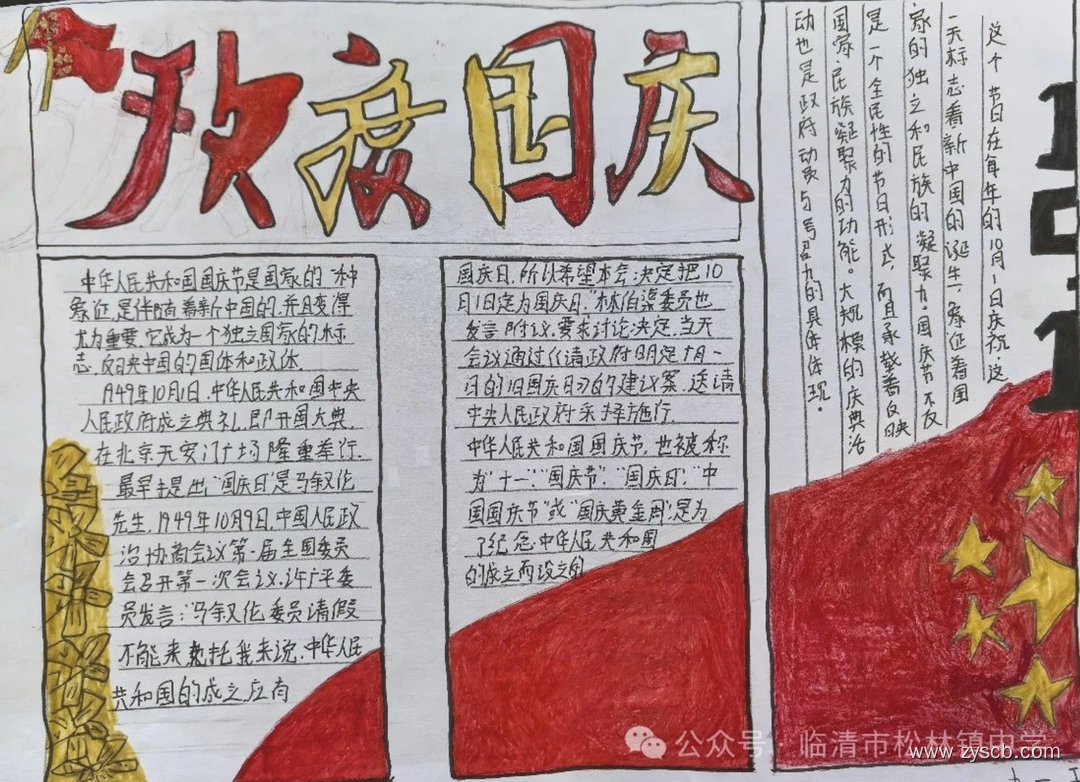 欢度国庆
中华人民共和国国庆节是国家的一种
象征,是伴随着新中国的,并且变得
尤为重要,它成为一个独立国家的标
志,反映中国的国体和政体.
1949年10月1日,中华人民共和国中央
人民政府成立典礼,即开国大典,
在北京天安门广场隆重举行.
最早提出"国庆日"是马叙伦
先生,1949年10月9日,中国人民政
治协商会议第一届全国委员
会召开第一次会议.许广平委
员发言:"马叙伦委员请假
不能来,托我来说,中华人民
共和国的成立,应有
国庆日,所以希望本会决定把10
月1日定为国庆日,"林伯渠委员也
发言附议,要求讨论决定,当天
会议通过《请政府明定十月一
日的旧国庆日》的建议案,送请
中央人民政府采择施行.
中华人民共和国国庆节,也被称
为"十一"."国庆节"."国庆日"."中
国国庆节"或"国庆黄金周",是为
了纪念中华人民共和国
的成立而设立的
这个节日在每年的10月1日庆祝,这
一天标志着新中国的诞生,象征着国
家的独立和民族的凝聚力.国庆节不仅
是一个全民性的节日形式,而且承载着反映
国家、民族凝聚力的功能。大规模的庆典活
动也是政府动员与号召力的具体体现。
10.1
公众号·临清市松林镇中学
www.zyscb.com